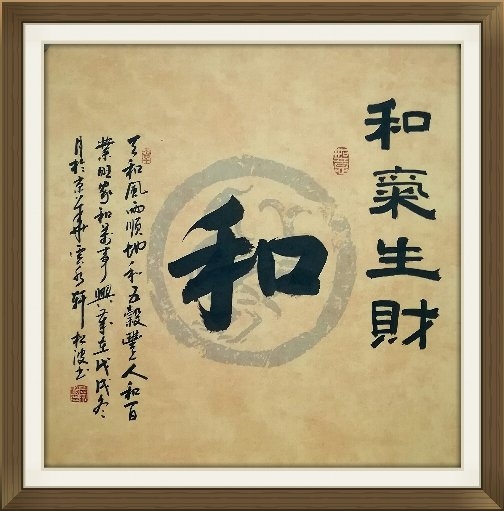 和氣生財
和
天和風雨順地和五穀豐人和百
業旺家和萬事興歲在戊戌冬
月於京華雲水軒松波書